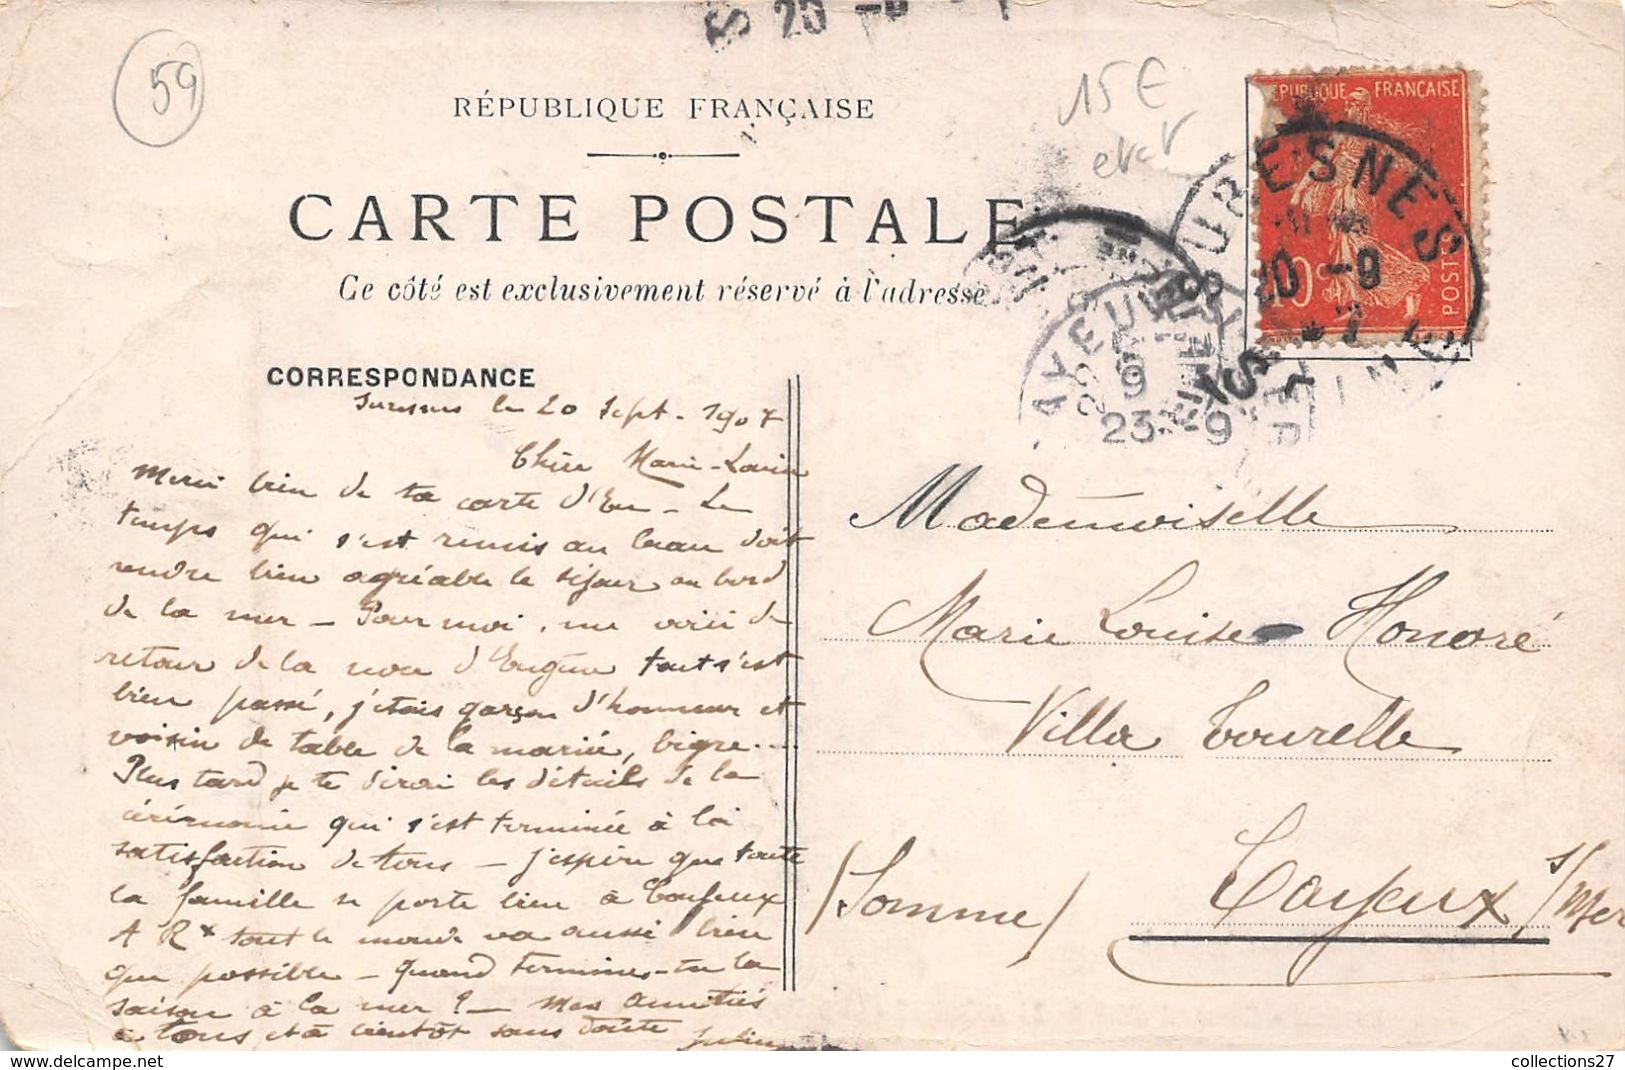 S 20 -9
59
15€
etat
RÉPUBLIQUE FRANÇAISE
CARTE POSTALE
Ce côté est exclusivement réservé à l'adresse
RÉPUBLIQUE FRANÇAISE
POSTES
SURESNES
20 -9
CAYEUX
23 9
CORRESPONDANCE
Suresnes le 20 Sept. 1907
Chère Marie-Louise
Merci bien de ta carte d'Eu - Le
temps qui s'est remis au beau doit
rendre bien agréable le séjour au bord
de la mer - Pour moi, me voici de
retour de la noce d'Eugène tout s'est
bien passé, j'etais garçon d'honneur et
voisin de table de la mariée, bigre....
Plus tard je te dirai les détails de la
cérémonie qui s'est terminée à la
satisfaction de tous - j'espère que toute
la famille se porte bien à Cayeux
A R x tout le monde va aussi bien
que possible - Quand termines-tu la
saison à la mer ? - Mes amitiés
à tous et à bientôt sans doute Julien
Mademoiselle
Marie Louise Honoré
Villa Tourelle
(Somme) Cayeux s/Mer
collections27